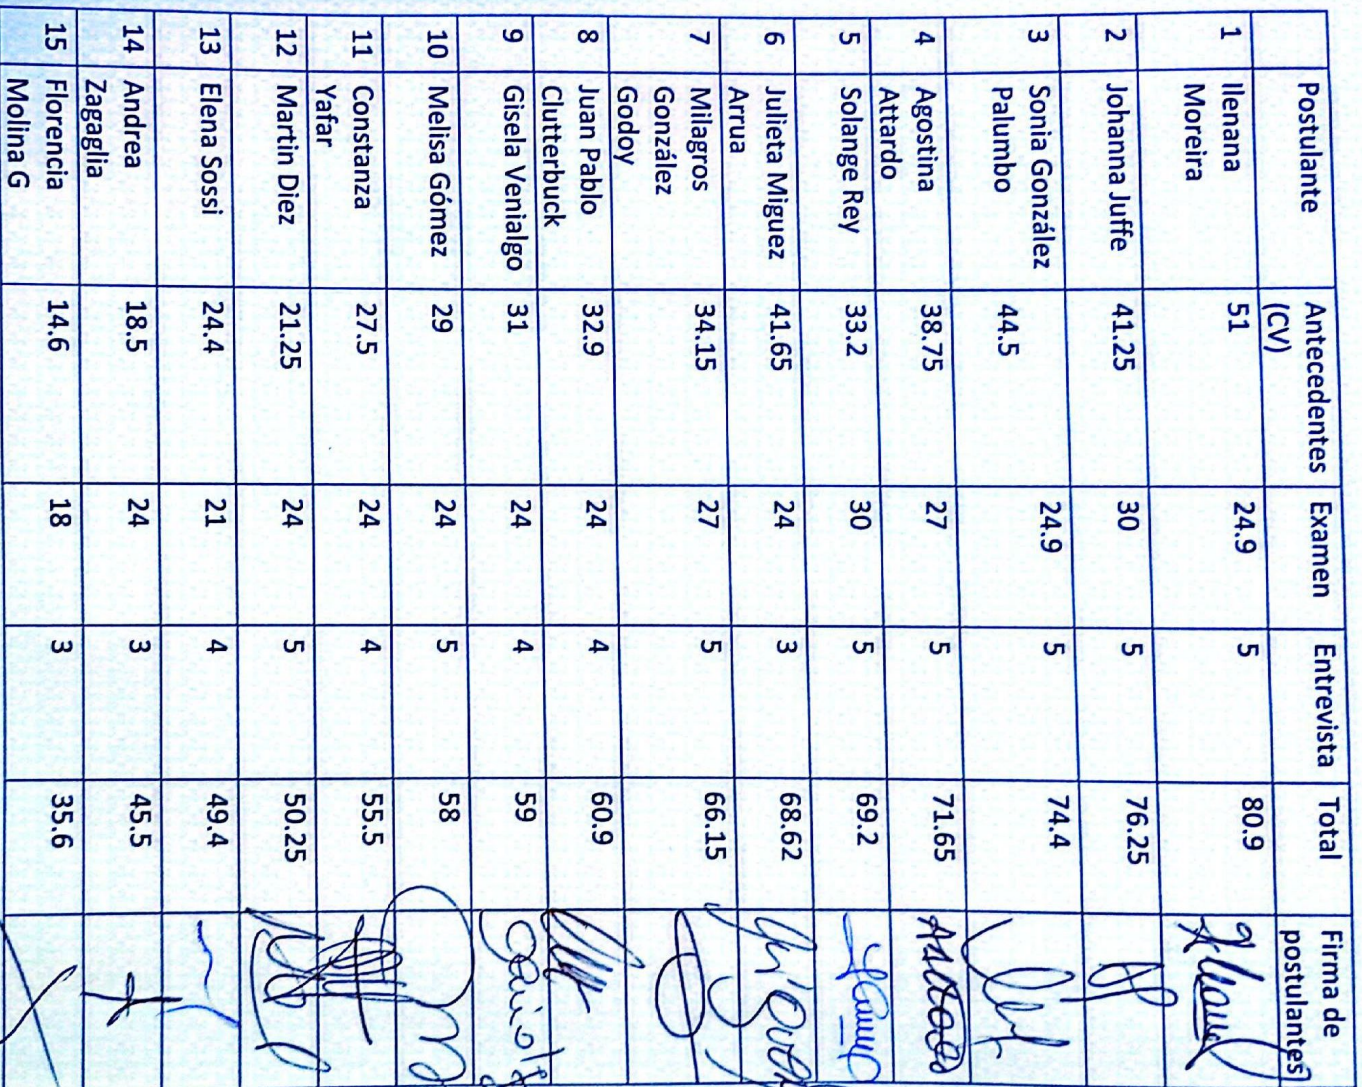 Postulante Antecedentes (CV) Examen Entrevista Total Firma de postulantes
1 Ilenana Moreira 51 24.9 5 80.9
2 Johanna Juffe 41.25 30 5 76.25
3 Sonia González Palumbo 44.5 24.9 5 74.4
4 Agostina Attardo 38.75 27 5 71.65
5 Solange Rey 33.2 30 5 69.2
6 Julieta Miguez Arrua 41.65 24 3 68.62
7 Milagros González Godoy 34.15 27 5 66.15
8 Juan Pablo Clutterbuck 32.9 24 4 60.9
9 Gisela Venialgo 31 24 4 59
10 Melisa Gómez 29 24 5 58
11 Constanza Yafar 27.5 24 4 55.5
12 Martin Diez 21.25 24 5 50.25
13 Elena Sossi 24.4 21 4 49.4
14 Andrea Zagaglia 18.5 24 3 45.5
15 Florencia Molina G 14.6 18 3 35.6